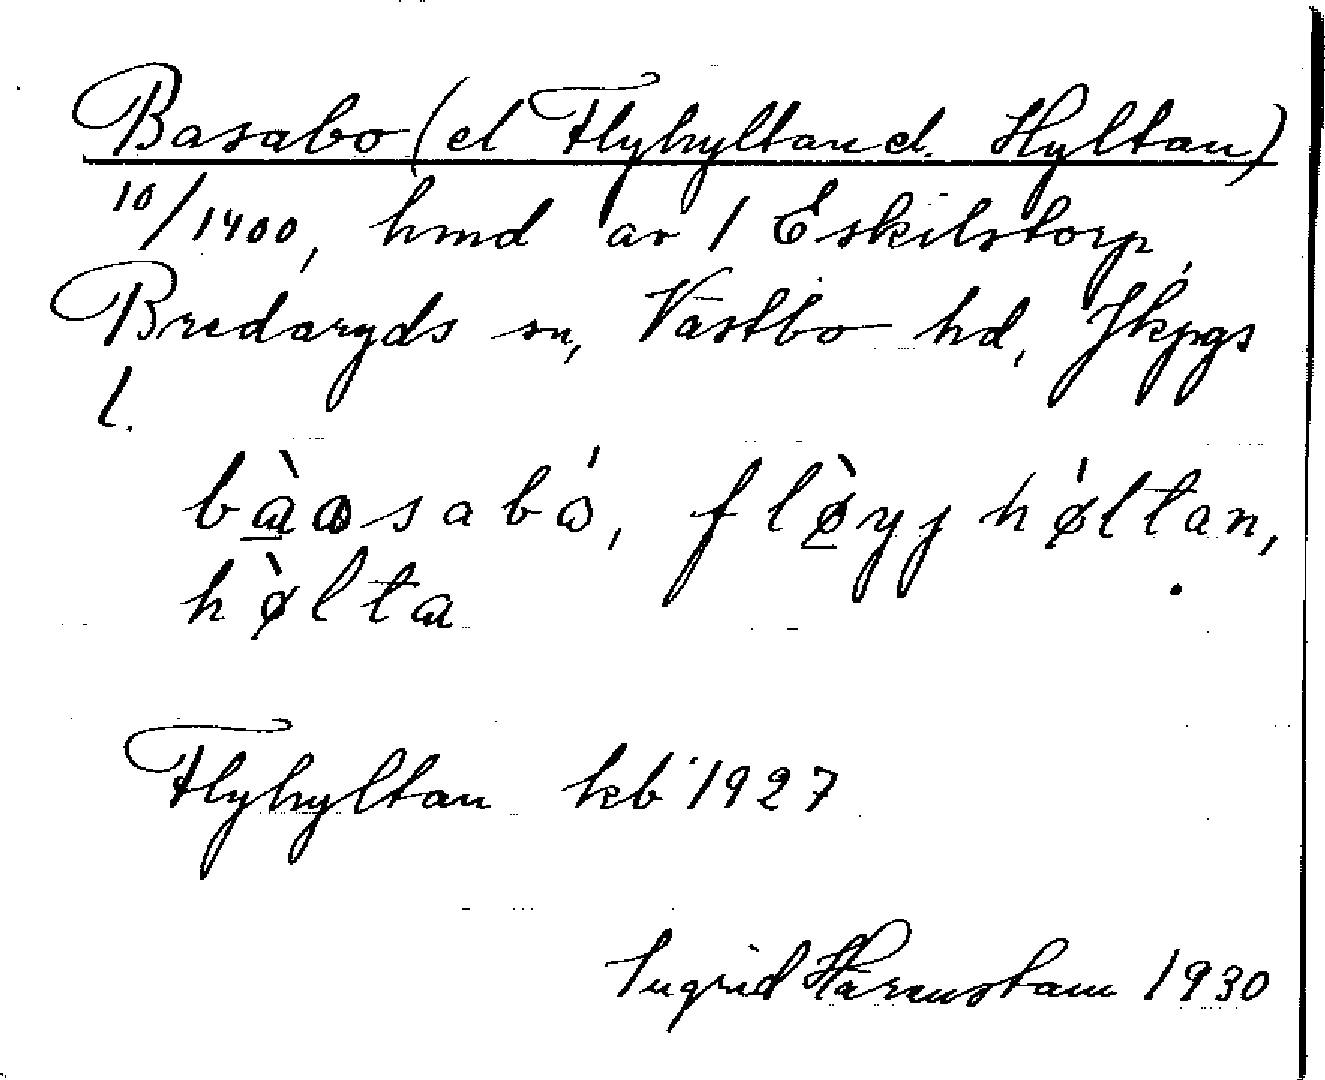 Basabo (el Flyhyltan el. Hyltan)
10/1400, hmd av 1 Eskilstorp,
Bredaryds sn, Västbo hd, Jkpgs
l.
bàɑsabó, flø̀yjhøltan,
hø̀lta
Flyhyltan kb 1927
Ingrid Härenstam 1930